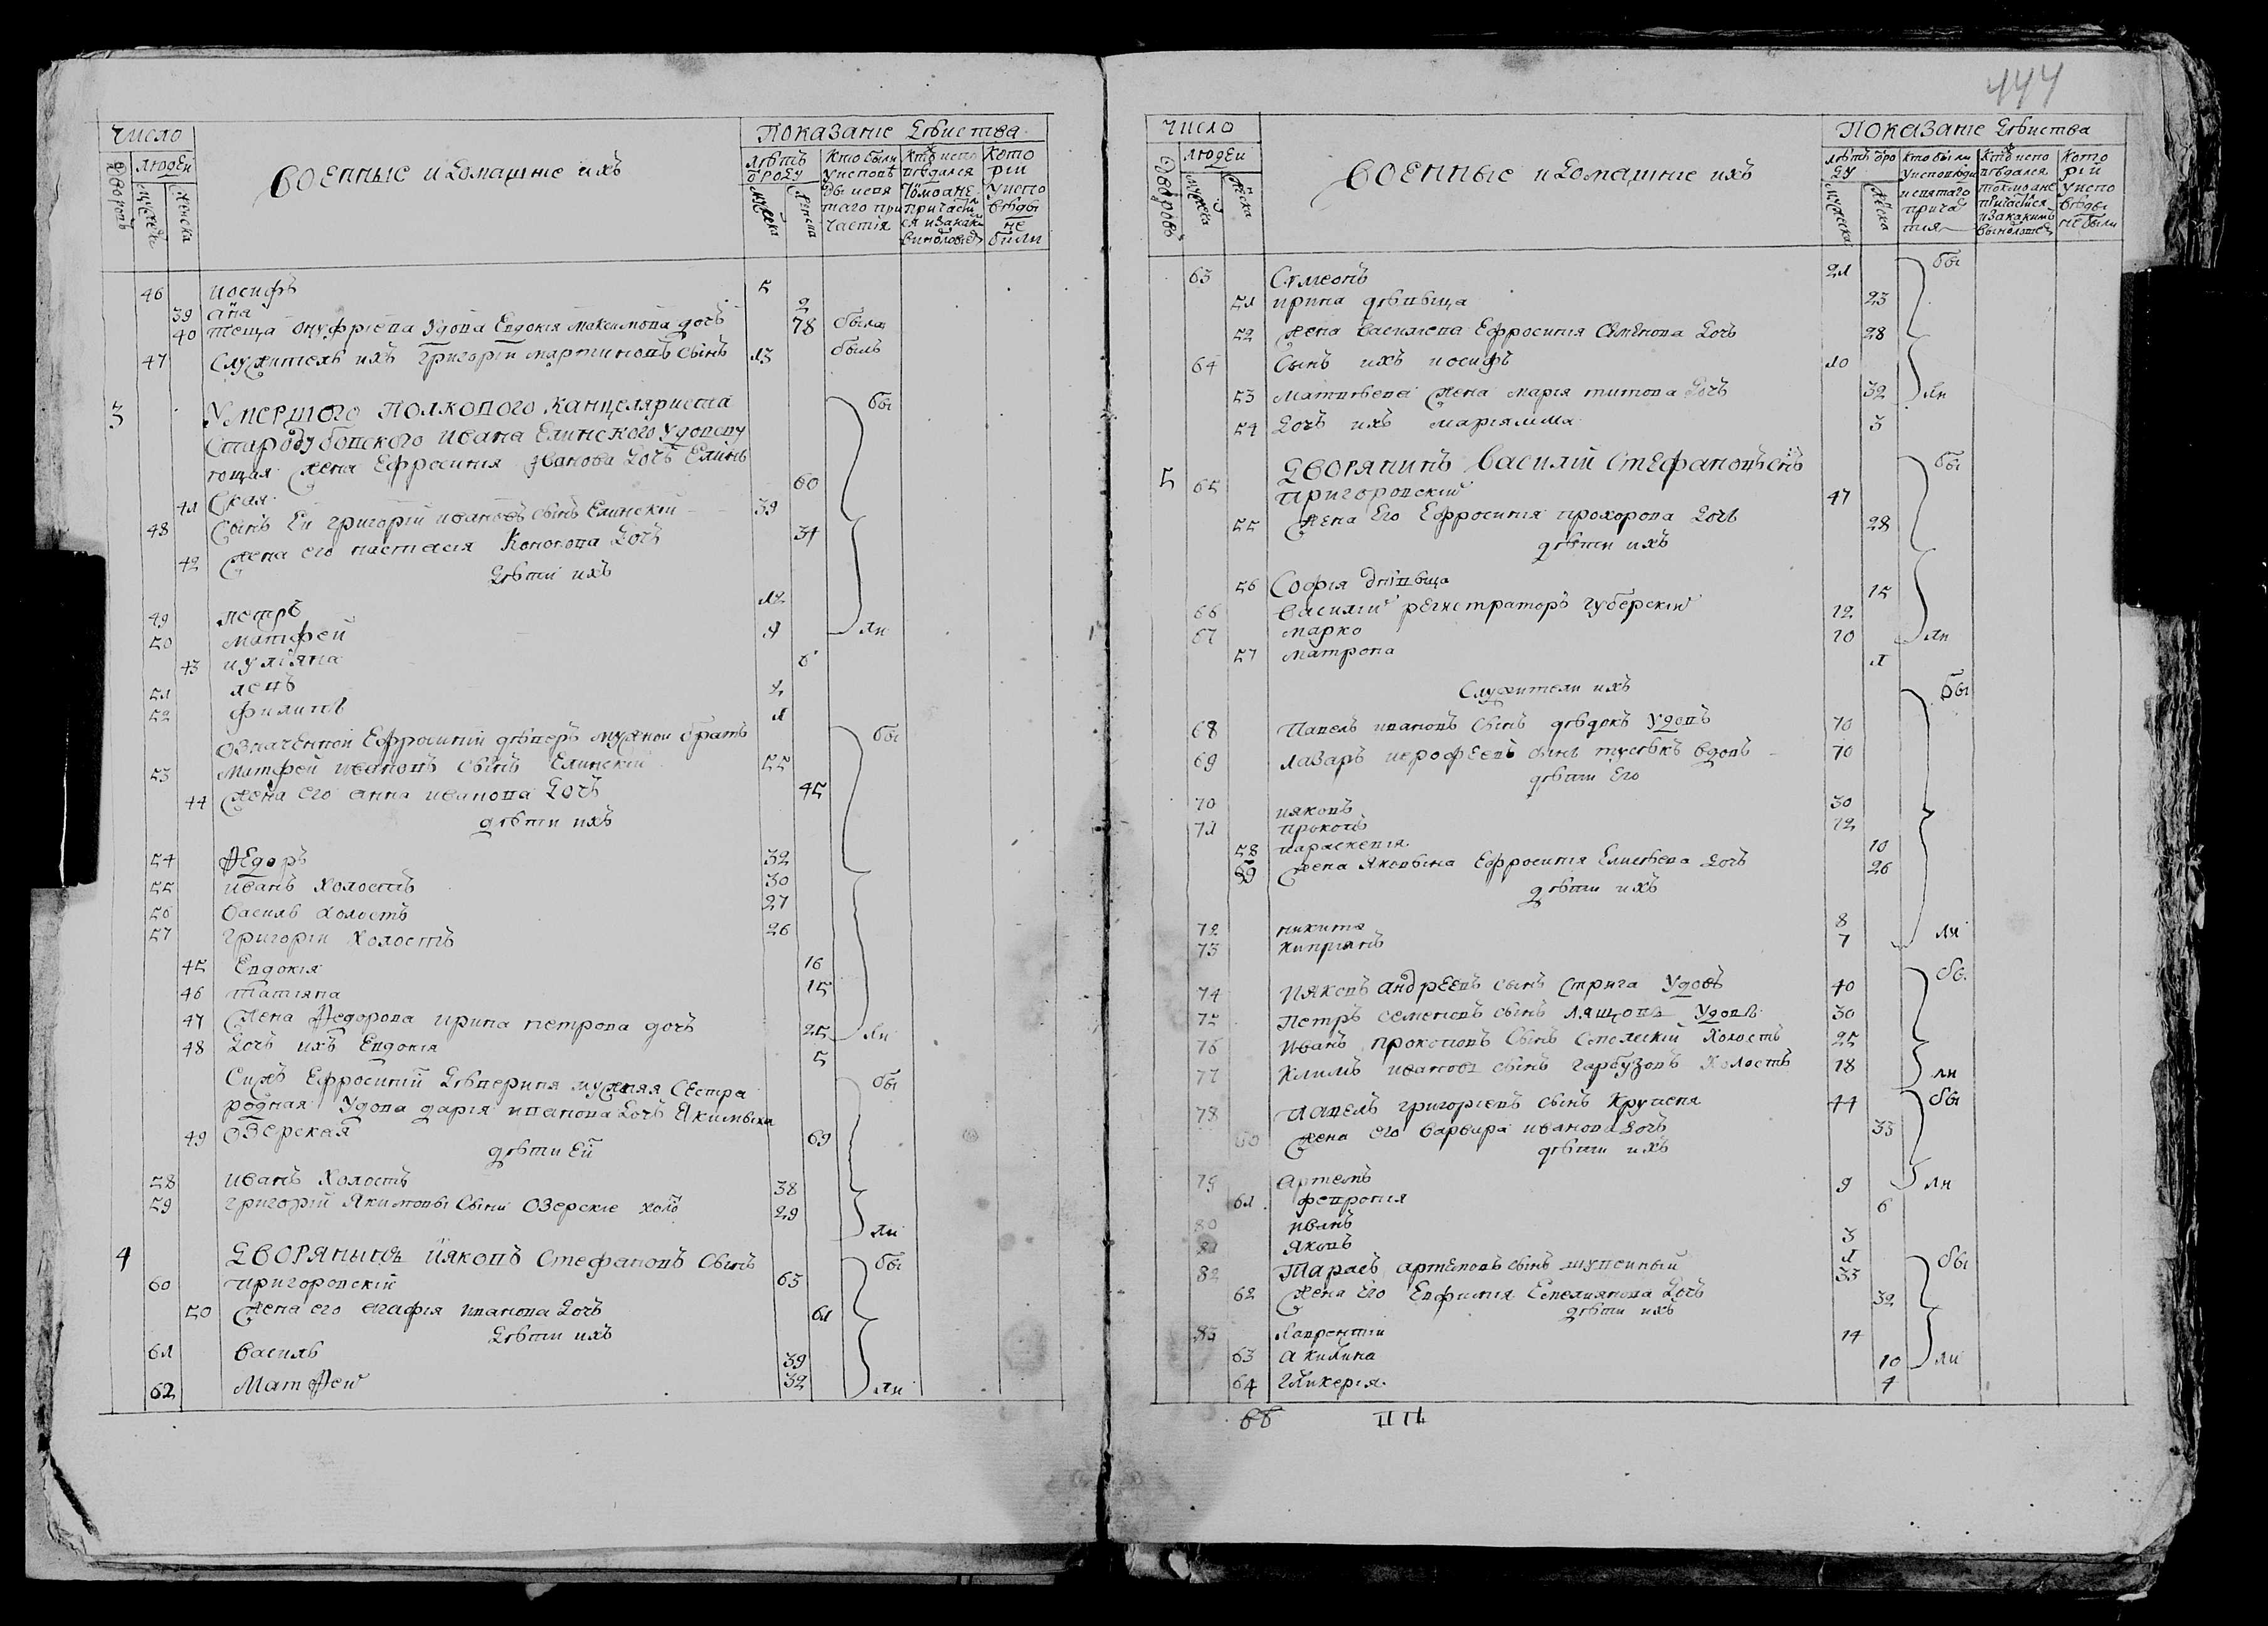 444
Число
Показание Действа
Дворовъ
людей
мужеска
женска
Военные и домашние ихъ
летъ от роду
мужеска
женска
Кто были у исповеди и святаго причастия
Кто испо ведался токмо а не причастился и за каким винословием
Кото рии у испо веди не были
46 иосифъ 5
39 анна 2
40 теща онуфриева Удова Евдокия максимова дочь 78 была
47 Служитель ихъ григорий мартиновъ сынъ 13 былъ
3 Умершого полкового канцеляриста бы
Стародубовского ивана Елинского Удовству
ющая жена Ефросиния иванова дочъ Елинъ
41 Ская 60
48 Сынъ Ей григорий ивановъ сынъ Елинский 39
42 жена его настасия Кононова дочъ 34
дѣти ихъ
49 петръ 12
50 матфей 9 ли
43 иулияна 6
51 левъ 4
52 филипъ 1
означенной Ефросинии дѣверъ мужной братъ бы
53 Матфей ивановъ сынъ Елинский 55
44 жена его анна иванова дочъ 45
дѣти ихъ
54 Ѳедоръ 32
55 иванъ холостъ 30
56 василь холостъ 27
57 григорий холостъ 26
45 Евдокия 16
46 татияна 15
47 жена Ѳедорова ирина петрова дочъ 25 ли
48 дочъ ихъ Евдокия 5
Сихъ Ефросинии мужняя Сестра бы
родная Удова дария иванова дочъ Якимвиха
49 озерская 69
дѣти Ей
58 иванъ холостъ 38
59 григорий Якимовы сыни Озерские холо 29 ли
4 Дворянинъ Ияковъ Стефановъ Сынъ бы
60 пригоровский 65
50 жена его агафия иванова дочъ 61
дѣти ихъ
61 василь 39
62 Матѳей 32 ли
Число
Показание Действа
Дворовъ
людей
мужеска
женска
Военные и домашние ихъ
летъ от роду
мужеска
женска
Кто были у исповеди и святаго прича стия
Кто испо ведался токмо а не причастился и за каким винословием
Кото рии у испо веди не были
63 Симеонъ 21 бы
51 ирина дѣвица 23
52 жена василева Ефросиния Семенова дочъ 28
64 Сынъ ихъ иосифъ 10
53 Матвѣева жена мария титова дочъ 32 ли
54 дочъ ихъ мариямма 3
5 Дворянинъ Василий Стефановъ снъ бы
65 пригоровский 47
55 жена Его Ефросиния прохорова дочъ 28
дѣти ихъ
56 София дѣвица 15
66 василий регистраторъ губерский 12
67 марко 10 ли
57 матрона 1
Служители ихъ бы
68 Павелъ ивановъ сынъ дѣдокъ удовъ 70
69 лазаръ иерофеевъ сынъ вдовъ 70
дѣти Его
70 ияковъ 30
71 прокопъ 12
58 параскевия 10
59 жена Яковвина Ефросиния Елисѣева дочъ 26
дѣти ихъ
72 никита 8 ли
73 киприянъ 7
74 Ияковъ андреевъ сынъ Стрига Удовъ 40 бы
75 Петръ семеновъ сынъ Лящовъ Удовъ 30
76 Иванъ прокоповъ сынъ холостъ 25
77 Климъ ивановъ сынъ гарбузовъ холостъ 18 ли
78 Павелъ григориевъ сынъ 44 бы
60 жена его варвара иванова дочъ 33
дѣти ихъ
79 артемъ 9 ли
61 феврония 6
80 иванъ 3
81 Яковъ 1
82 Тарасъ артемовъ сынъ 33 бы
62 жена Его Евфимия Емелиянова дочъ 32
дѣти ихъ
83 лаврентий 14
63 акилина 10 ли
64 гликерия 4